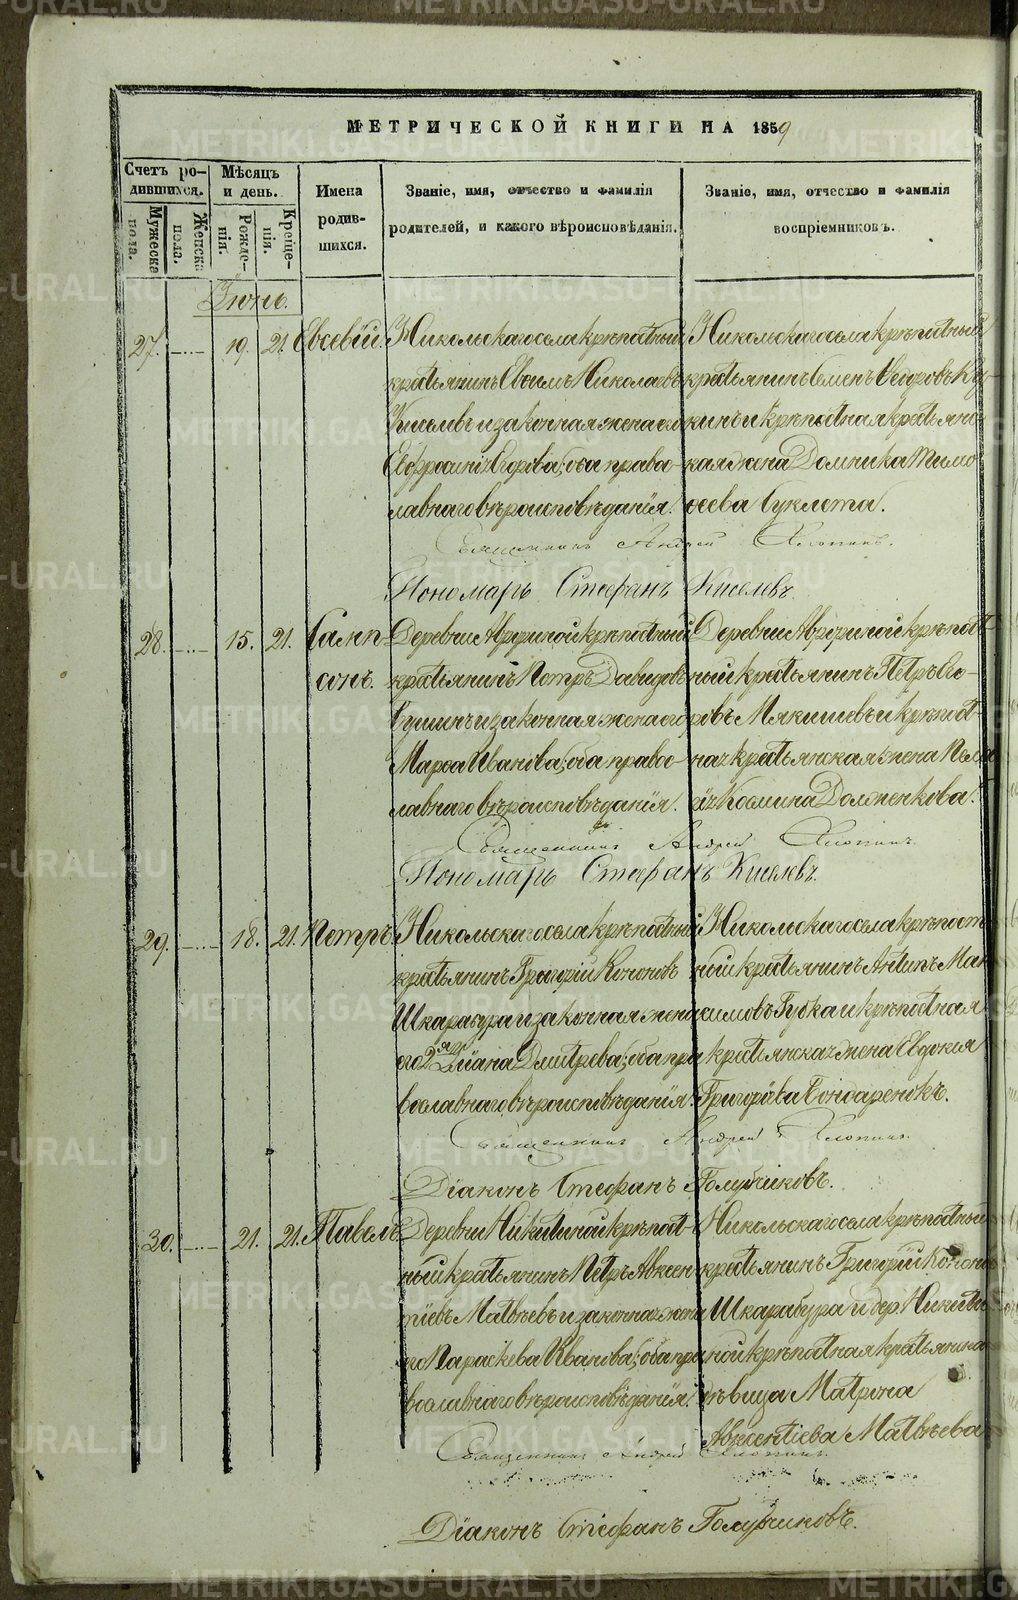 МЕТРИЧЕСКОЙ КНИГИ НА 1859
Счетъ ро-
дившихся.
Мужеска
пола.
Женска
пола.
Мѣсяцъ
и день.
Рожде-
нія.
Креще-
нія.
Имена
родив-
шихся.
Званіе, имя, отчество и фамилія
родителей, и какого вѣроисповѣданія.
Званіе, имя, отчество и фамилія
воспріемниковъ.
Іюнь.
27. 19. 21. Евсевій.
Никольскаго села крѣпостный
крестьянинъ Евѳимъ Николаевъ
Киселевъ и законная жена его
Евфросинія Егорова; оба право-
славнаго вѣроисповѣданія.
Никольскаго села крѣпостный
крестьянинъ Семенъ Ѳедоровъ
кинъ и крѣпостная крестьянс-
кая жена Домника Тимо
ѳеева Буклета.
Священникъ Андрей Хлопинъ.
Пономарь Стефанъ Киселевъ
28. 15. 21. Самп
сонъ.
Деревни Авериной крѣпостный
крестьянинъ Петръ Давидовъ
Сушинъ и законная жена его
Марѳа Иванова; оба право-
славнаго вѣроисповѣданія.
Деревни Авериной крѣпост
ный крестьянинъ Петръ Его-
ровъ Мякишевъ и крѣпост-
ная крестьянская жена Пела
гія Космина Долженкова.
Священникъ Андрей Хлопинъ.
Пономарь Стефанъ Киселевъ.
29. 18. 21. Петръ.
Никольскаго села крѣпостный
крестьянинъ Григорій Кононовъ
Шкарабура и законная жена
его Діана Дмитрева; оба пра
вославнаго вѣроисповѣданія.
Никольскаго села крѣпост
ный крестьянинъ Антипъ Мак
симовъ Губка и крѣпостная
крестьянская жена Евдокия
Григорьева Бондаренокъ.
Священникъ Андрей Хлопинъ.
Діаконъ Стефанъ Голубчиковъ.
30. 21. 21. Павелъ.
Деревни Никитиной крѣпост-
ный крестьянинъ Петръ Авксен
тіевъ Матвѣевъ и законная жена
его Параскева Иванова; оба пра
вославнаго вѣроисповѣданія.
Никольскаго села крѣпостный
крестьянинъ Григорій Кононовъ
Шкарабура и дер. Никити
ной крѣпостная крестьянка
дѣвица Матрона
Авксентіева Матвѣева
Священникъ Андрей Хлопинъ.
Діаконъ Стефанъ Голубчиковъ.
METRIKI.GASO-URAL.RU